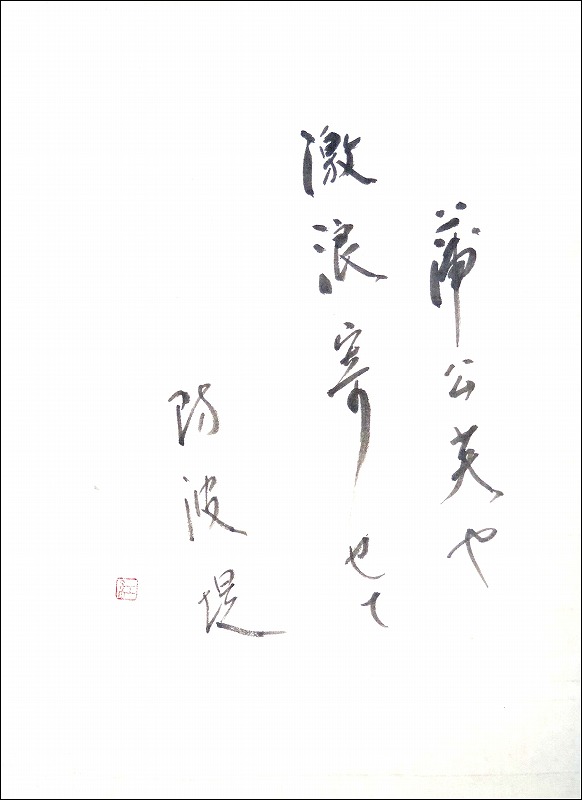 蒲公英や
激浪寄せて
防波堤